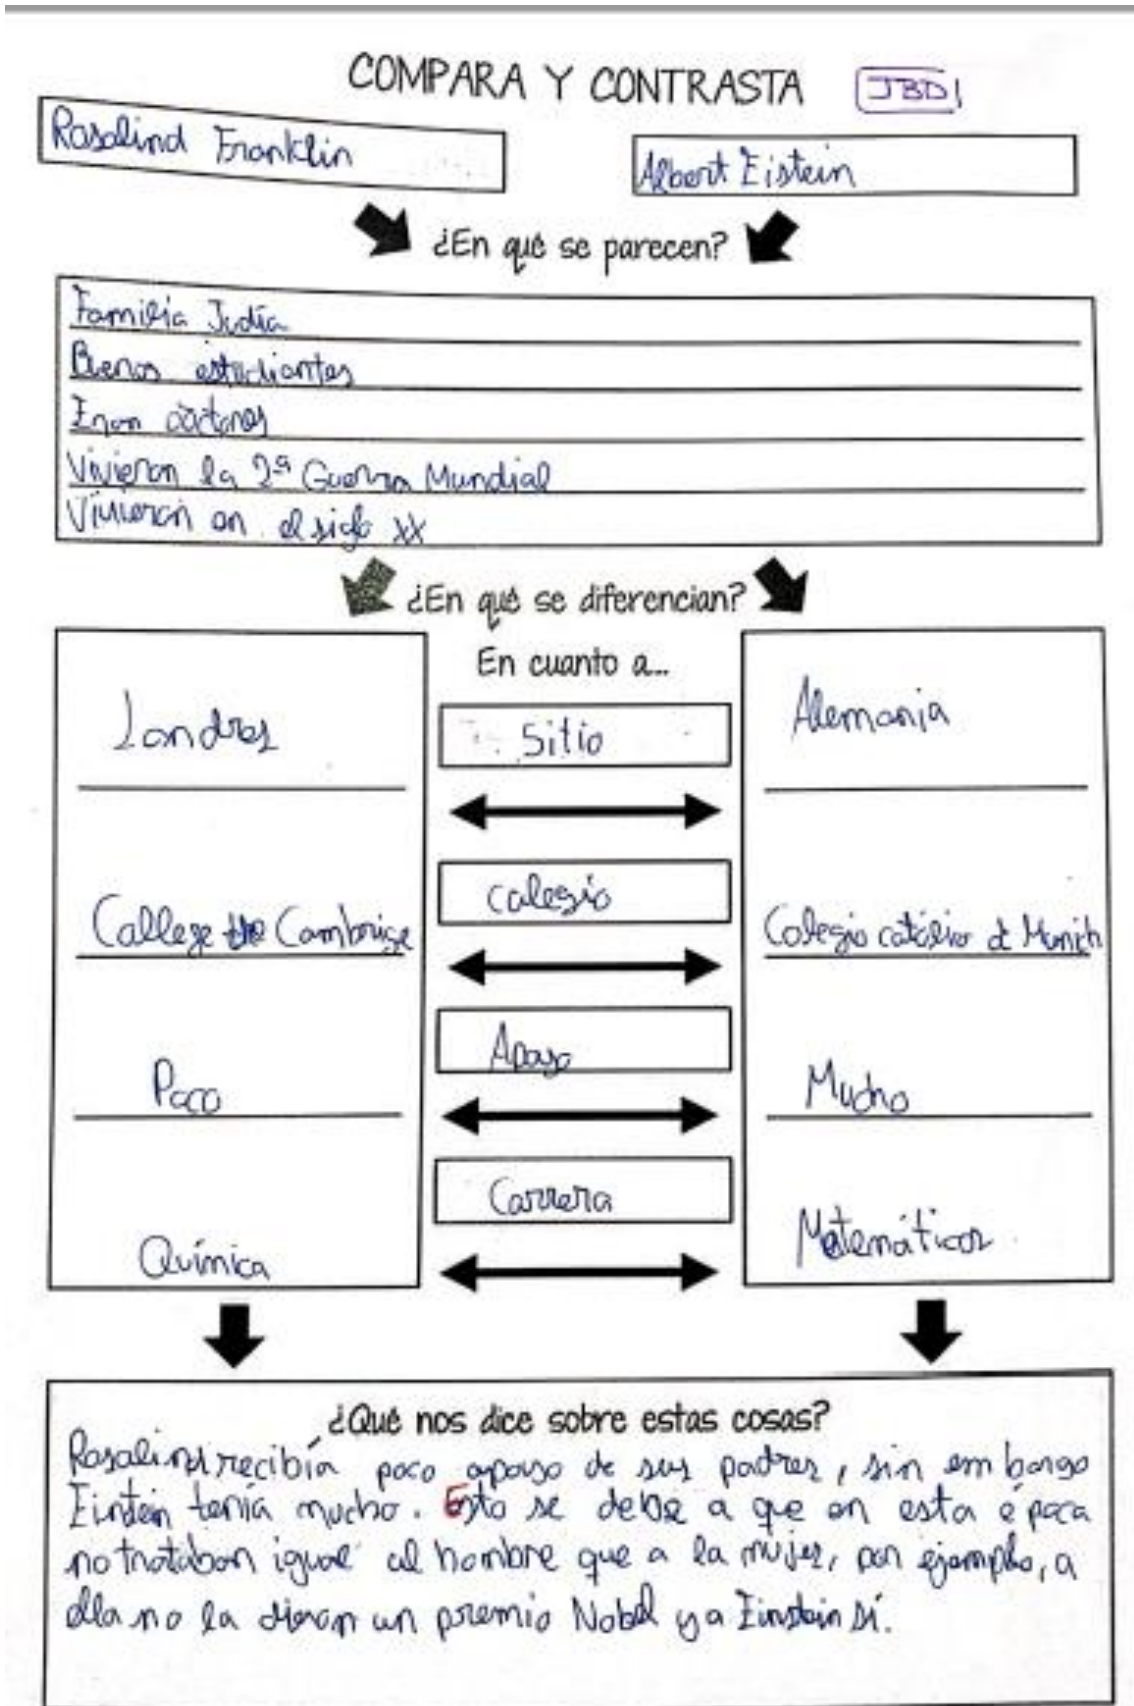 COMPARA Y CONTRASTA JBD1
Rosalind Franklin
Albert Eistein
¿En qué se parecen?
Familia Judía
Buenos estudiantes
Eran doctores
Vivieron la 2ª Guerra Mundial
Vivieron en el siglo XX
¿En qué se diferencian?
En cuanto a...
Londres
Sitio
Alemania
College the Cambrige
Colegio
Colegio católico de Munich
Poco
Apoyo
Mucho
Química
Carrera
Matemáticas
¿Qué nos dice sobre estas cosas?
Rosalind recibía poco apoyo de sus padres, sin embargo
Einstein tenía mucho. Esto se debe a que en esta época
no trataban igual al hombre que a la mujer, por ejemplo, a
ella no la dieron un premio Nobel y a Einstein sí.